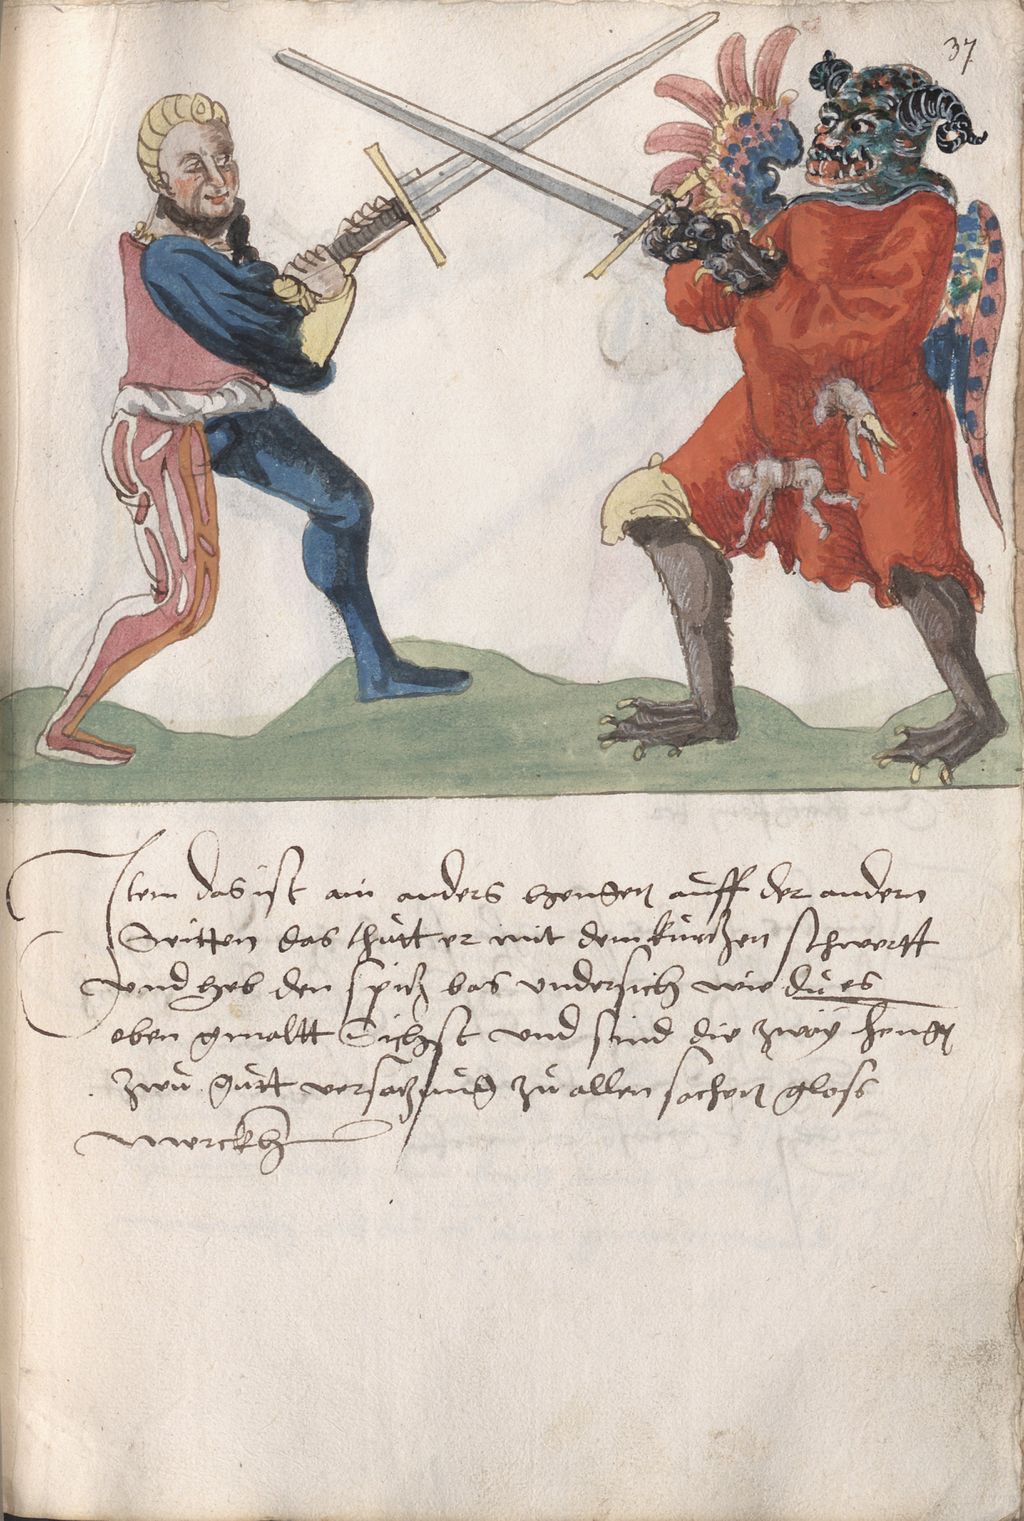 37
Item das ist ain anders hengen auff der andern
Seitten das thůtt er mit dem kurtzen schwertt
vnd heb den spitz bas vndersich wie du es
eben gmaltt Sichst vnd sind die zway heng
zwu gůtt versatzung zů allen sachen gloss
merckh